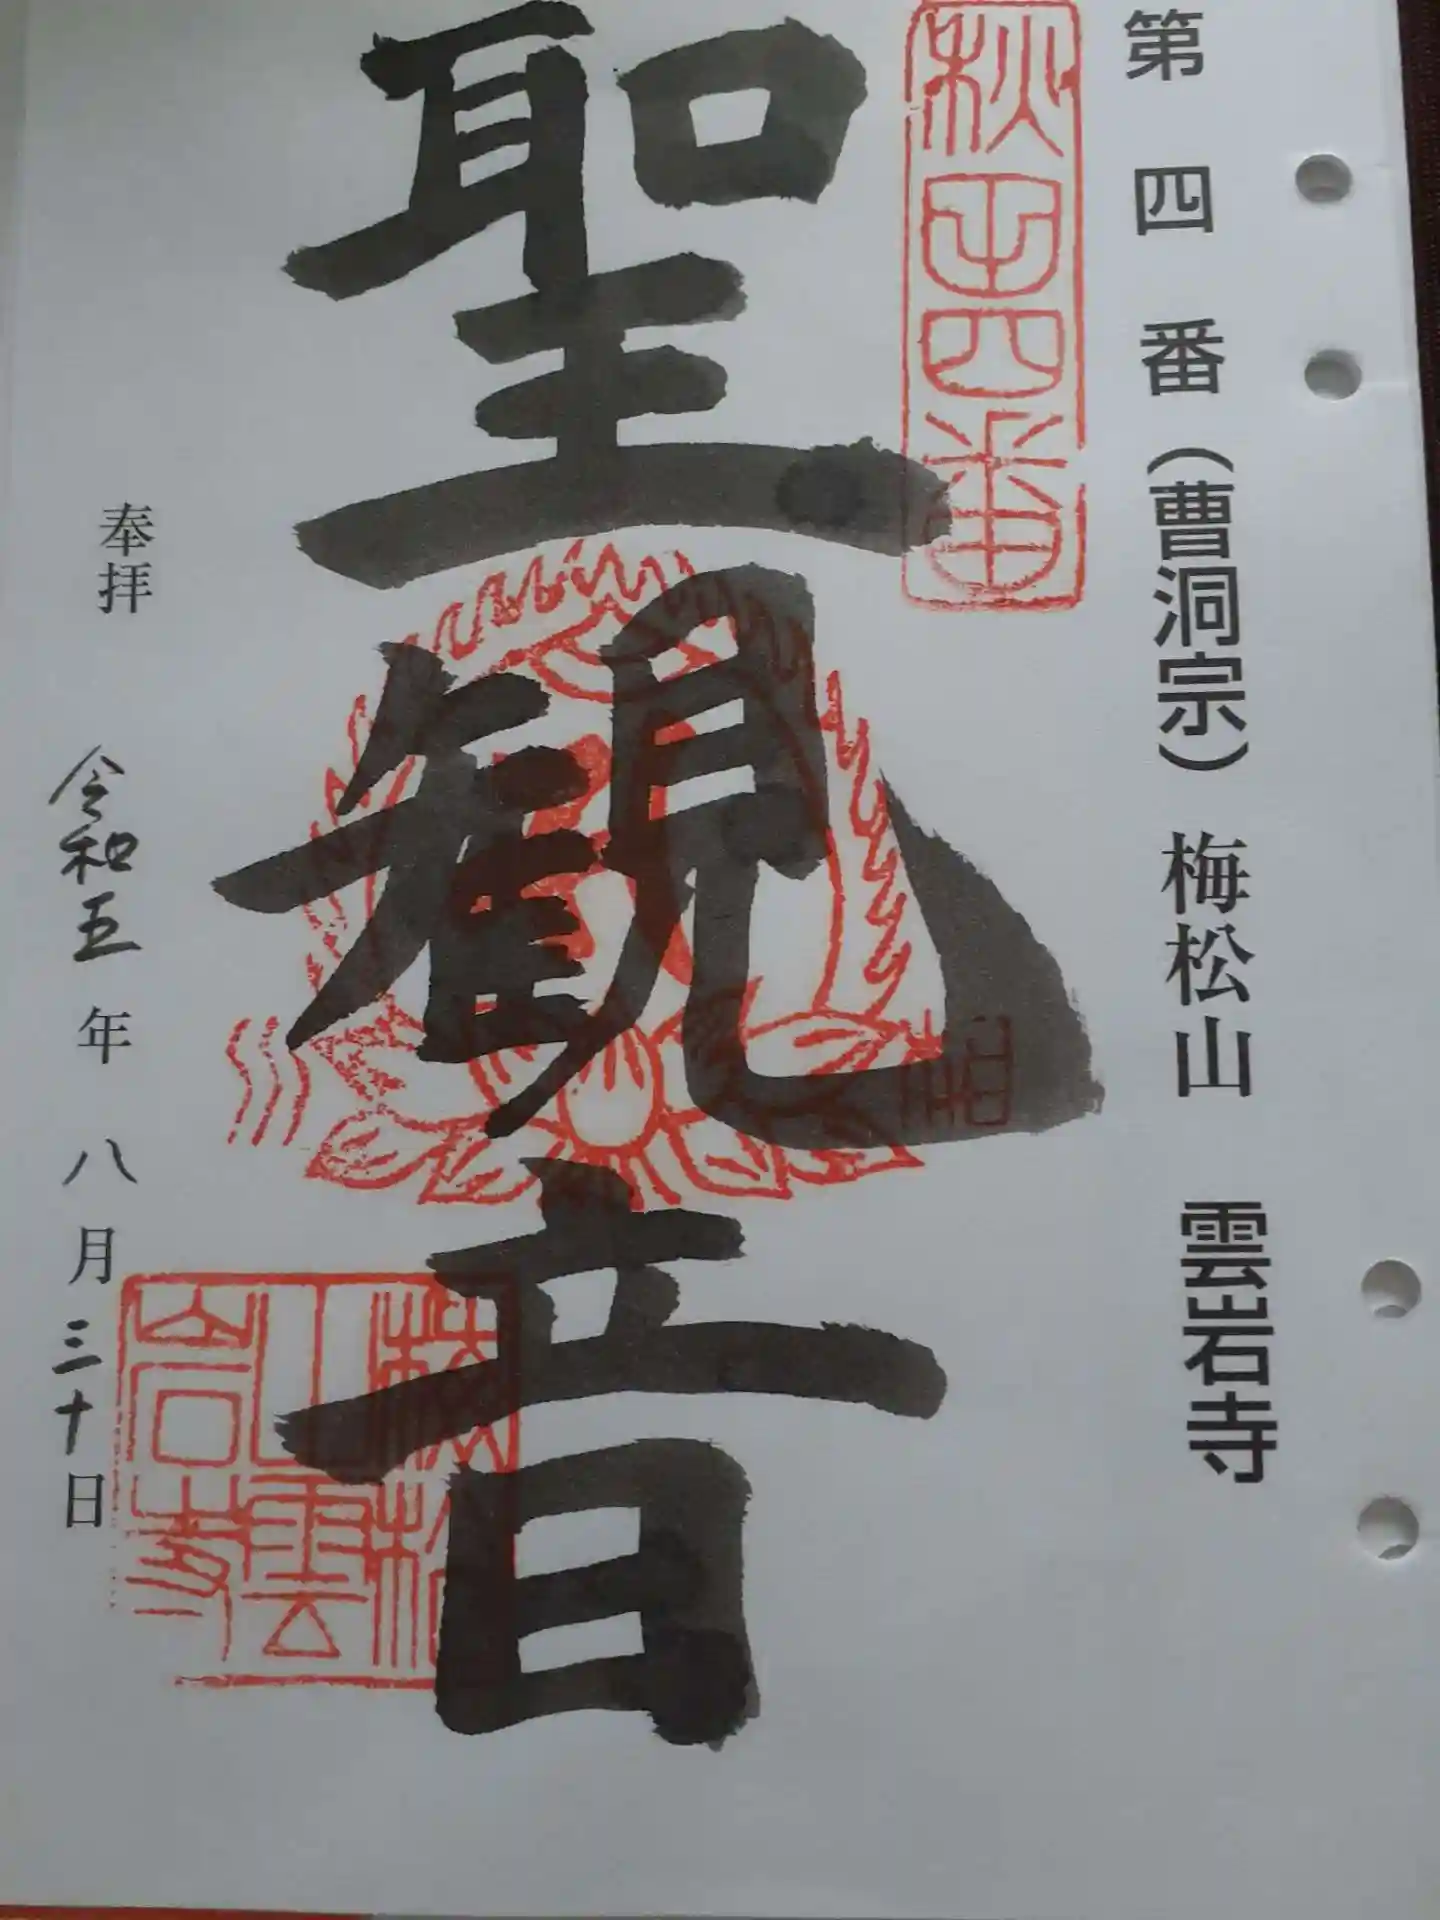 第四番（曹洞宗）梅松山 雲岩寺
秋田四番
聖観音
梅松山雲岩寺
奉拝
令和五年 八月三十日